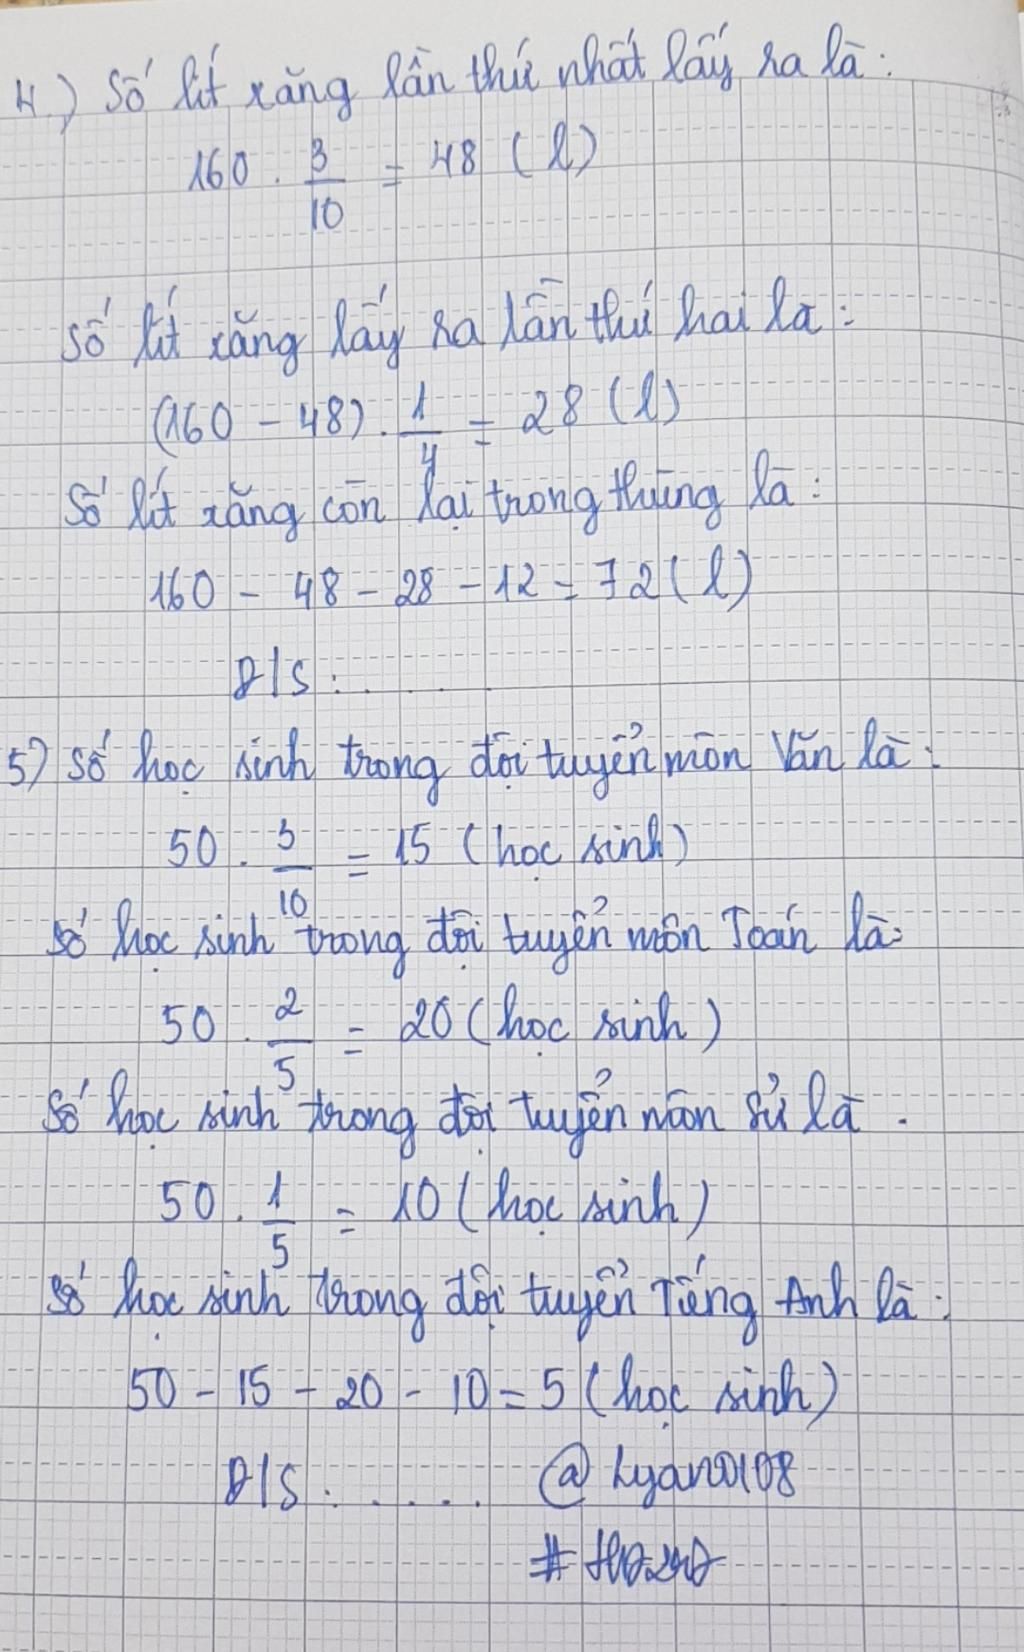 4.) Số lít xăng lần thứ nhất lấy ra là:
160 . 3/10 = 48 (l)
Số lít xăng lấy ra lần thứ hai là:
(160 - 48) . 1/4 = 28 (l)
Số lít xăng còn lại trong thùng là:
160 - 48 - 28 - 12 = 72 (l)
Đ/S: ........
5) Số học sinh trong đội tuyển môn Văn là:
50 . 3/10 = 15 (học sinh)
Số học sinh trong đội tuyển môn Toán là:
50 . 2/5 = 20 (học sinh)
Số học sinh trong đội tuyển môn Sử là.
50 . 1/5 = 10 (học sinh)
Số học sinh trong đội tuyển Tiếng Anh là:
50 - 15 - 20 - 10 = 5 (học sinh)
Đ/S: ......